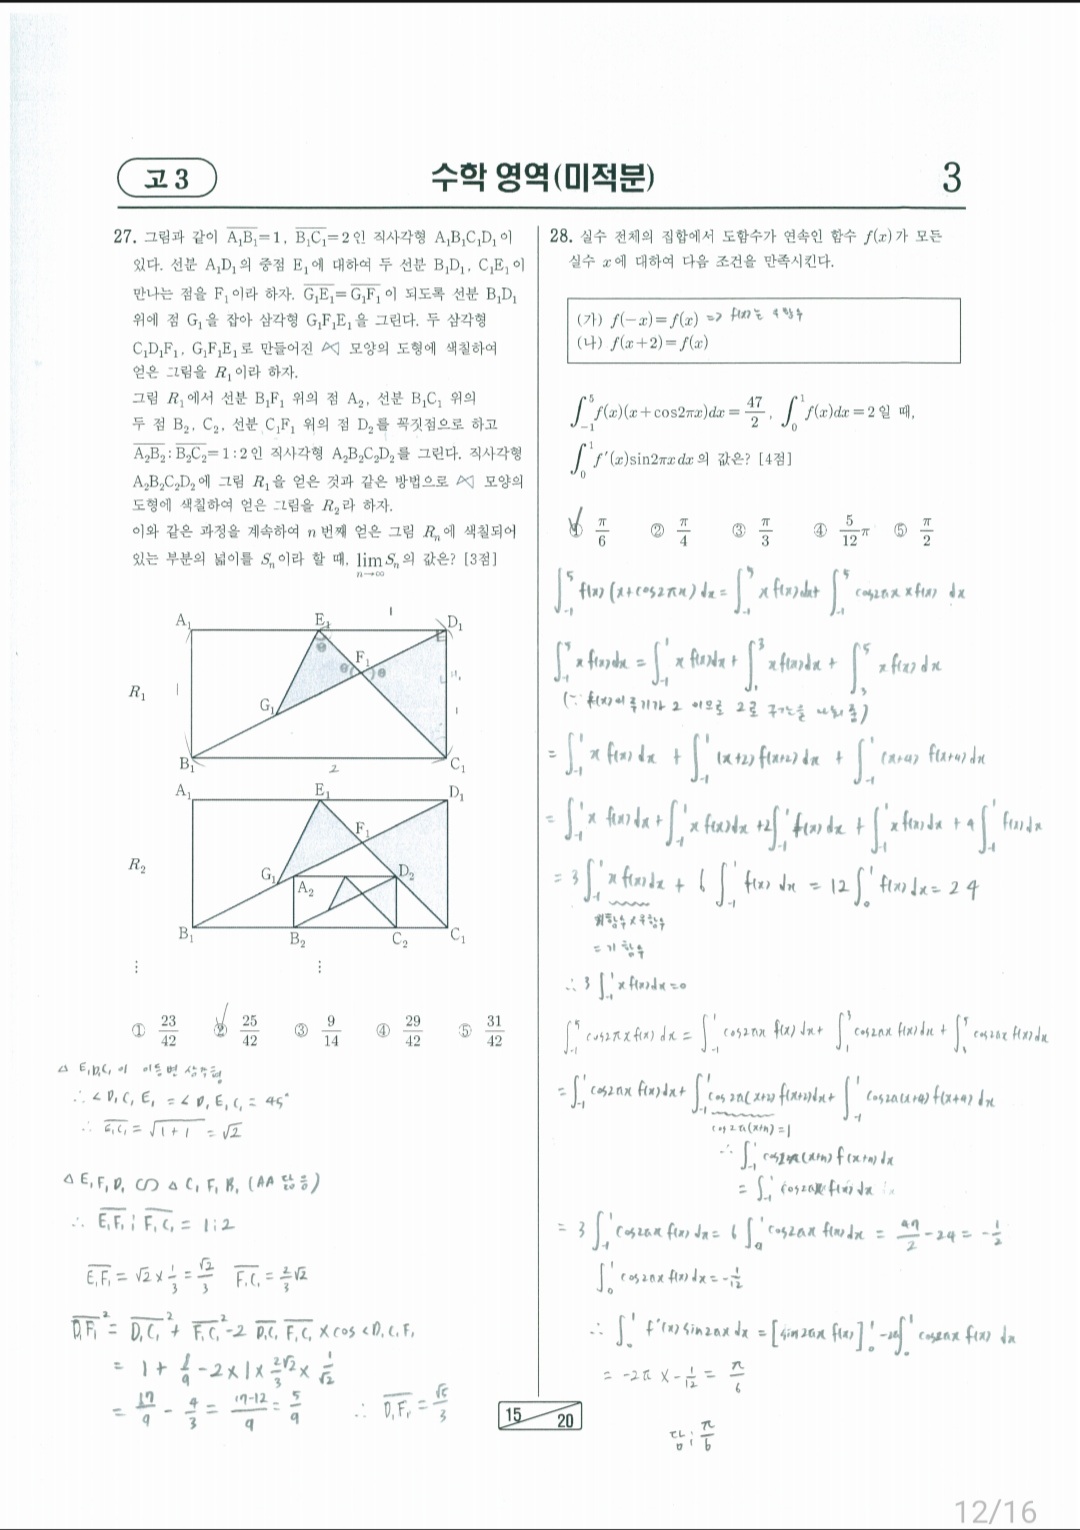 고 3
수학 영역(미적분)
3
27. 그림과 같이 A₁B₁=1, B₁C₁=2인 직사각형 A₁B₁C₁D₁이
있다. 선분 A₁D₁의 중점 E₁에 대하여 두 선분 B₁D₁, C₁E₁이
만나는 점을 F₁이라 하자. G₁E₁=G₁F₁이 되도록 선분 B₁D₁
위에 점 G₁을 잡아 삼각형 G₁F₁E₁을 그린다. 두 삼각형
C₁D₁F₁, G₁F₁E₁로 만들어진 ⋈ 모양의 도형에 색칠하여
얻은 그림을 R₁이라 하자.
그림 R₁에서 선분 B₁F₁ 위의 점 A₂, 선분 B₁C₁ 위의
두 점 B₂, C₂, 선분 C₁F₁ 위의 점 D₂를 꼭짓점으로 하고
A₂B₂:B₂C₂=1:2인 직사각형 A₂B₂C₂D₂를 그린다. 직사각형
A₂B₂C₂D₂에 그림 R₁을 얻은 것과 같은 방법으로 ⋈ 모양의
도형에 색칠하여 얻은 그림을 R₂라 하자.
이와 같은 과정을 계속하여 n번째 얻은 그림 Rₙ에 색칠되어
있는 부분의 넓이를 Sₙ이라 할 때, lim n→∞ Sₙ의 값은? [3점]
A₁ E₁ 1 D₁
F₁
R₁ 1 G₁ 1
B₁ 2 C₁
A₁ E₁ D₁
F₁
R₂ G₁ A₂ D₂
B₁ B₂ C₂ C₁
⋮ ⋮
① 23/42 ② 25/42 ③ 9/14 ④ 29/42 ⑤ 31/42
△E₁D₁C₁이 이등변 삼각형
∴ ∠D₁C₁E₁ = ∠D₁E₁C₁ = 45°
∴ E₁C₁ = √(1+1) = √2
△E₁F₁D₁ ∽ △C₁F₁B₁ (AA 닮음)
∴ E₁F₁ : F₁C₁ = 1:2
E₁F₁ = √2 × 1/3 = √2/3 F₁C₁ = 2/3√2
D₁F₁² = D₁C₁² + F₁C₁² - 2 D₁C₁ F₁C₁ × cos∠D₁C₁F₁
= 1 + 8/9 - 2×1× 2√2/3 × 1/√2
= 17/9 - 4/3 = 17-12/9 = 5/9 ∴ D₁F₁ = √5/3
28. 실수 전체의 집합에서 도함수가 연속인 함수 f(x)가 모든
실수 x에 대하여 다음 조건을 만족시킨다.
(가) f(-x)=f(x) => f(x)는 우함수
(나) f(x+2)=f(x)
∫₋₁⁵ f(x)(x+cos2πx)dx = 47/2, ∫₀¹ f(x)dx=2일 때,
∫₀¹ f′(x)sin2πx dx의 값은? [4점]
① π/6 ② π/4 ③ π/3 ④ 5/12π ⑤ π/2
∫₋₁⁵ f(x)(x+cos2πx)dx = ∫₋₁⁵ x f(x)dx + ∫₋₁⁵ cos2πx × f(x) dx
∫₋₁⁵ x f(x)dx = ∫₋₁¹ x f(x)dx + ∫₁³ x f(x)dx + ∫₃⁵ x f(x)dx
(∵ f(x)의 주기가 2 이므로 2로 구간을 나눠줌)
= ∫₋₁¹ x f(x)dx + ∫₋₁¹ (x+2)f(x+2)dx + ∫₋₁¹ (x+4) f(x+4)dx
= ∫₋₁¹ x f(x)dx + ∫₋₁¹ x f(x)dx + 2∫₋₁¹ f(x)dx + ∫₋₁¹ x f(x)dx + 4∫₋₁¹ f(x)dx
= 3∫₋₁¹ x f(x)dx + 6∫₋₁¹ f(x)dx = 12∫₀¹ f(x)dx = 24
기함수×우함수
= 기함수
∴ 3∫₋₁¹ x f(x)dx = 0
∫₋₁⁵ cos2πx f(x)dx = ∫₋₁¹ cos2πx f(x)dx + ∫₁³ cos2πx f(x)dx + ∫₃⁵ cos2πx f(x)dx
= ∫₋₁¹ cos2πx f(x)dx + ∫₋₁¹ cos2π(x+2) f(x+2)dx + ∫₋₁¹ cos2π(x+4) f(x+4)dx
∴ ∫₋₁¹ cos2π(x+n) f(x+n)dx
= ∫₋₁¹ cos2πx f(x)dx
= 3∫₋₁¹ cos2πx f(x)dx = 6∫₀¹ cos2πx f(x)dx = 47/2 - 24 = -1/2
∫₀¹ cos2πx f(x)dx = -1/12
∴ ∫₀¹ f′(x)sin2πx dx = [sin2πx f(x)]₀¹ - 2π∫₀¹ cos2πx f(x) dx
= -2π × -1/12 = π/6
답: π/6
15 20
12/16